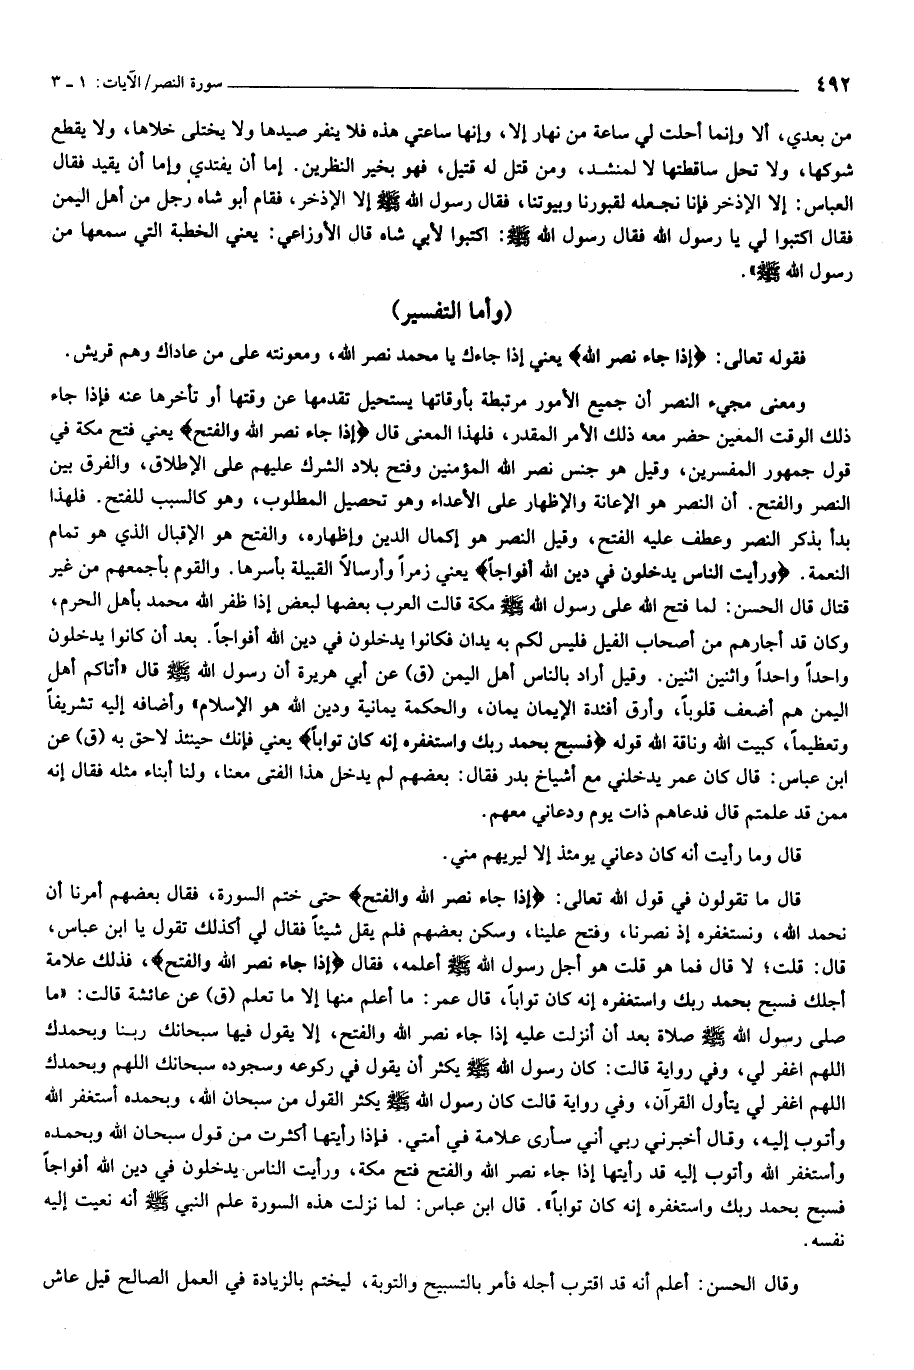 ٤٩٢ سورة النصر/ الآيات: ١ - ٣
من بعدي، ألا وإنما أحلت لي ساعة من نهار إلا، وإنها ساعتي هذه فلا ينفر صيدها ولا يختلى خلاها، ولا يقطع
شوكها، ولا تحل ساقطتها لا لمنشد، ومن قتل له قتيل، فهو بخير النظرين. إما أن يفتدي وإما أن يقيد فقال
العباس: إلا الإذخر فإنا نجعله لقبورنا وبيوتنا، فقال رسول الله ﷺ إلا الإذخر، فقام أبو شاه رجل من أهل اليمن
فقال اكتبوا لي يا رسول الله فقال رسول الله ﷺ: اكتبوا لأبي شاه قال الأوزاعي: يعني الخطبة التي سمعها من
رسول الله ﷺ».
(وأما التفسير)
فقوله تعالى: ﴿إذا جاء نصر الله﴾ يعني إذا جاءك يا محمد نصر الله، ومعونته على من عاداك وهم قريش.
ومعنى مجيء النصر أن جميع الأمور مرتبطة بأوقاتها يستحيل تقدمها عن وقتها أو تأخرها عنه فإذا جاء
ذلك الوقت المعين حضر معه ذلك الأمر المقدر، فلهذا المعنى قال ﴿إذا جاء نصر الله والفتح﴾ يعني فتح مكة في
قول جمهور المفسرين، وقيل هو جنس نصر الله المؤمنين وفتح بلاد الشرك عليهم على الإطلاق، والفرق بين
النصر والفتح. أن النصر هو الإعانة والإظهار على الأعداء وهو تحصيل المطلوب، وهو كالسبب للفتح. فلهذا
بدأ بذكر النصر وعطف عليه الفتح، وقيل النصر هو إكمال الدين وإظهاره، والفتح هو الإقبال الذي هو تمام
النعمة. ﴿ورأيت الناس يدخلون في دين الله أفواجاً﴾ يعني زمراً وأرسالاً القبيلة بأسرها. والقوم بأجمعهم من غير
قتال قال الحسن: لما فتح الله على رسول الله ﷺ مكة قالت العرب بعضها لبعض إذا ظفر الله محمد بأهل الحرم،
وكان قد أجارهم من أصحاب الفيل فليس لكم به يدان فكانوا يدخلون في دين الله أفواجاً. بعد أن كانوا يدخلون
واحداً واحداً واثنين اثنين. وقيل أراد بالناس أهل اليمن (ق) عن أبي هريرة أن رسول الله ﷺ قال «أتاكم أهل
اليمن هم أضعف قلوباً، وأرق أفئدة الإيمان يمان، والحكمة يمانية ودين الله هو الإسلام» وأضافه إليه تشريفاً
وتعظيماً، كبيت الله وناقة الله قوله ﴿فسبح بحمد ربك واستغفره إنه كان تواباً﴾ يعني فإنك حينئذ لاحق به (ق) عن
ابن عباس: قال كان عمر يدخلني مع أشياخ بدر فقال: بعضهم لم يدخل هذا الفتى معنا، ولنا أبناء مثله فقال إنه
ممن قد علمتم قال فدعاهم ذات يوم ودعاني معهم.
قال وما رأيت أنه كان دعاني يومئذ إلا ليريهم مني.
قال ما تقولون في قول الله تعالى: ﴿إذا جاء نصر الله والفتح﴾ حتى ختم السورة، فقال بعضهم أمرنا أن
نحمد الله، ونستغفره إذ نصرنا، وفتح علينا، وسكن بعضهم فلم يقل شيئاً فقال لي أكذلك تقول يا ابن عباس،
قال: قلت؛ لا قال فما هو قلت هو أجل رسول الله ﷺ أعلمه، فقال ﴿إذا جاء نصر الله والفتح﴾، فذلك علامة
أجلك فسبح بحمد ربك واستغفره إنه كان تواباً، قال عمر: ما أعلم منها إلا ما تعلم (ق) عن عائشة قالت: «ما
صلى رسول الله ﷺ صلاة بعد أن أنزلت عليه إذا جاء نصر الله والفتح، إلا يقول فيها سبحانك ربنا وبحمدك
اللهم اغفر لي، وفي رواية قالت: كان رسول الله ﷺ يكثر أن يقول في ركوعه وسجوده سبحانك اللهم وبحمدك
اللهم اغفر لي يتأول القرآن، وفي رواية قالت كان رسول الله ﷺ يكثر القول من سبحان الله، وبحمده أستغفر الله
وأتوب إليه، وقال أخبرني ربي أني سأرى علامة في أمتي. فإذا رأيتها أكثرت من قول سبحان الله وبحمده
وأستغفر الله وأتوب إليه قد رأيتها إذا جاء نصر الله والفتح فتح مكة، ورأيت الناس يدخلون في دين الله أفواجاً
فسبح بحمد ربك واستغفره إنه كان تواباً». قال ابن عباس: لما نزلت هذه السورة علم النبي ﷺ أنه نعيت إليه
نفسه.
وقال الحسن: أعلم أنه قد اقترب أجله فأمر بالتسبيح والتوبة، ليختم بالزيادة في العمل الصالح قيل عاش